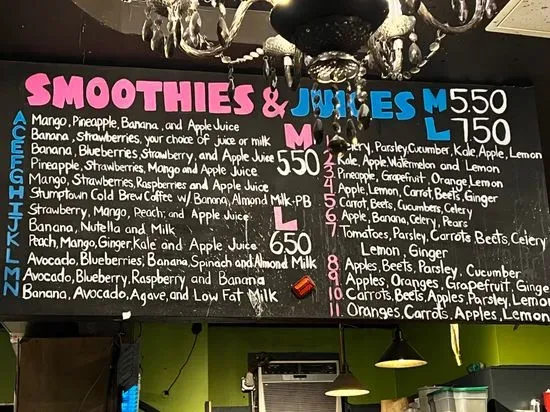 SMOOTHIES & JUICES M 5.50
L 7.50
A Mango, Pineapple, Banana, and Apple Juice
C Banana, Strawberries, your choice of juice or milk
E Banana, Blueberries, Strawberry, and Apple Juice
F Pineapple, Strawberries, Mango and Apple Juice
G Mango, Strawberries, Raspberries and Apple Juice
H Stumptown Cold Brew Coffee w/ Banana, Almond Milk, PB
I Strawberry, Mango, Peach, and Apple Juice
J Banana, Nutella and Milk
K Peach, Mango, Ginger, Kale and Apple Juice
L Avocado, Blueberries, Banana, Spinach and Almond Milk
M Avocado, Blueberry, Raspberry and Banana
N Banana, Avocado, Agave, and Low Fat Milk
M
5.50
L
6.50
1 Celery, Parsley, Cucumber, Kale, Apple, Lemon
2 Kale, Apple, Watermelon and Lemon
3 Pineapple, Grapefruit, Orange, Lemon
4 Apple, Lemon, Carrot, Beets, Ginger
5 Carrot, Beets, Cucumbers, Celery
6 Apple, Banana, Celery, Pears
7 Tomatoes, Parsley, Carrots Beets, Celery
Lemon, Ginger
8 Apples, Beets, Parsley, Cucumber
9 Apples, Oranges, Grapefruit, Ginge
10 Carrots, Beets, Apples, Parsley, Lemon
11 Oranges, Carrots, Apples, Lemon